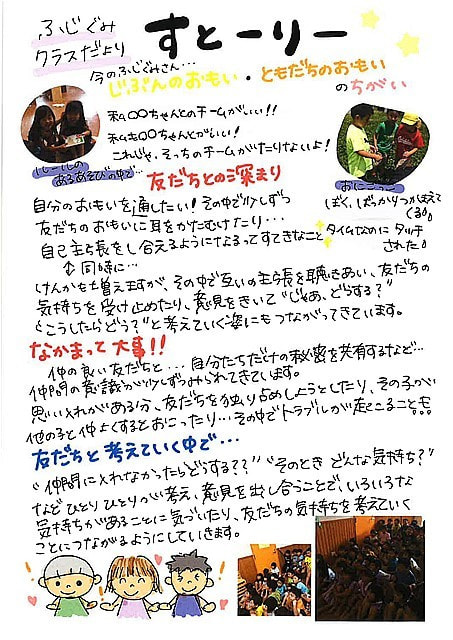 ふじぐみ
クラスだより
すとーりー
今のふじぐみさん…
じぶんのおもい・ともだちのおもい
のちがい
私〇〇ちゃんとのチームがいい!!
私も〇〇ちゃんとがいい!
これじゃ、そっちのチームがたりないよ!
ルールの
あるあそびの中で…
友だちとの深まり
おにごっこ
ぼく、ばっかりつかまえて
くる
タイムなのに タッチ
された
自分のおもいを通したい!その中で少しずつ
友だちのおもいに耳をかたむけたり…
自己主張をし合えるようになるってすてきなこと
↕同時に…
けんかも増えますが、その中で互いの主張を聴きあい、友だちの
気持ちを受け止めたり、意見をきいて“じゃあ、どうする?”
“こうしたらどう?”と考えていく姿にもつながってきています。
なかまって大事!!
仲の良い友だちと…自分たちだけの秘密を共有するなど…
仲間の意識が少しずつみられてきています。
思い入れがある分、友だちを独り占めしようとしたり、その子が
他の子と仲よくするとおこったり…その中でトラブルが起こることも…
友だちと考えていく中で…
“仲間に入れなかったらどうする??”“そのときどんな気持ち?”
などひとりひとりが考え、意見を出し合うことで、いろいろな
気持ちがあることに気づいたり、友だちの気持ちを考えていく
ことにつながるようにしていきます。